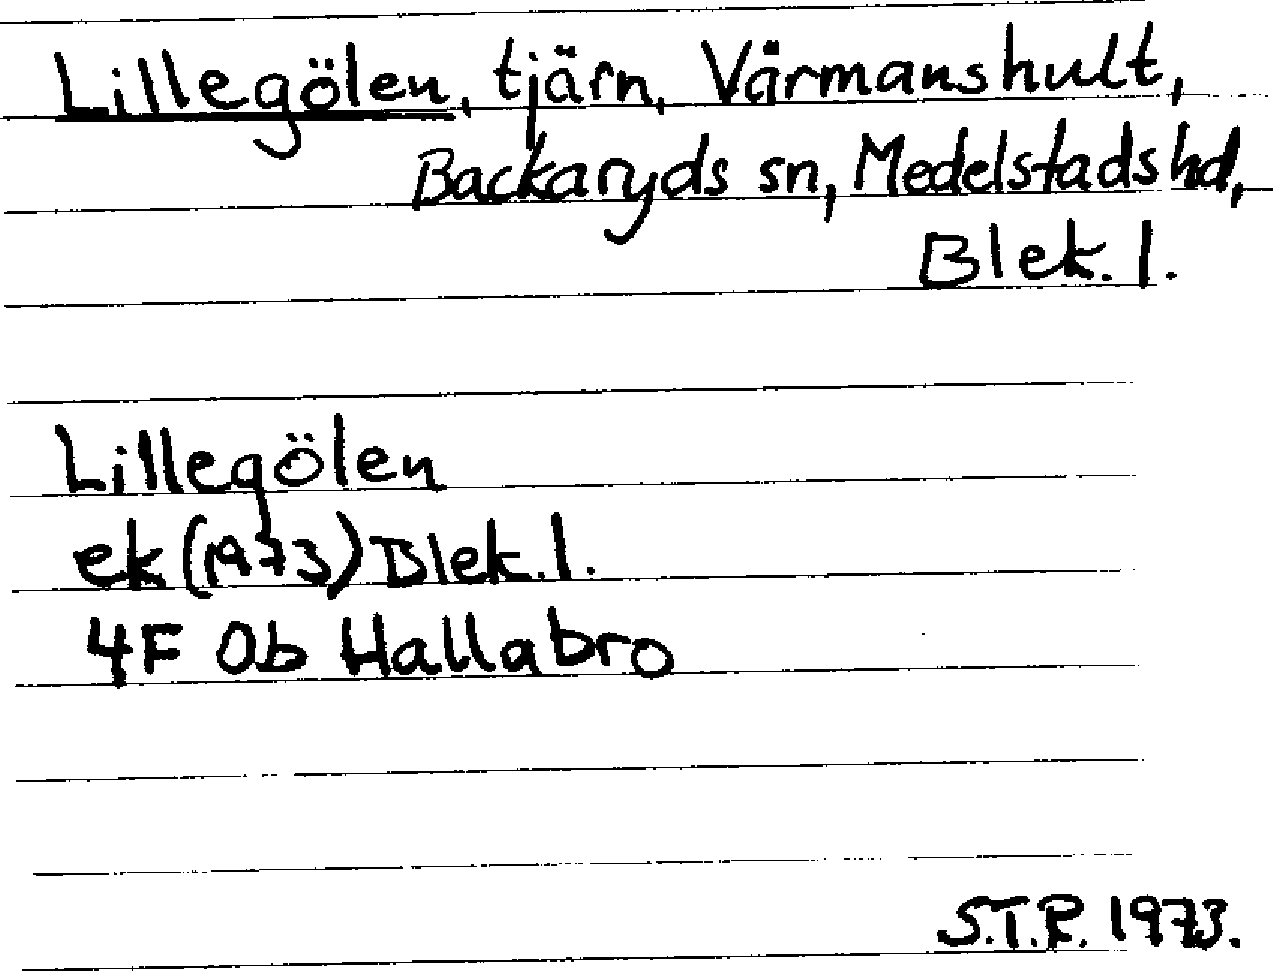 Lillegölen, tjärn, Värmanshult,
Backaryds sn, Medelstads hd,
Blek. l.
Lillegölen
ek (1973) Blek. l.
4F 0b Hallabro
S.T.R. 1973.